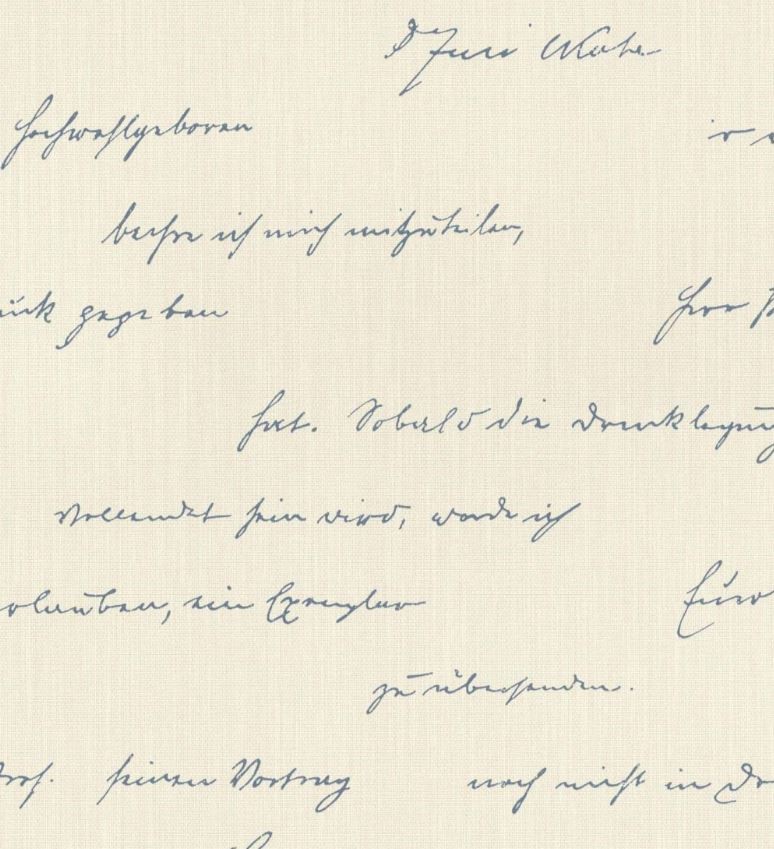 Hochwohlgeboren
beehre ich mich mitzuteilen,
ück gegeben Herr
hat. Sobald die Drucklegung
vollendet sein wird, werde ich
erlauben, ein Exemplar Euer
zu übersenden.
Prof. seinen Vortrag noch nicht in